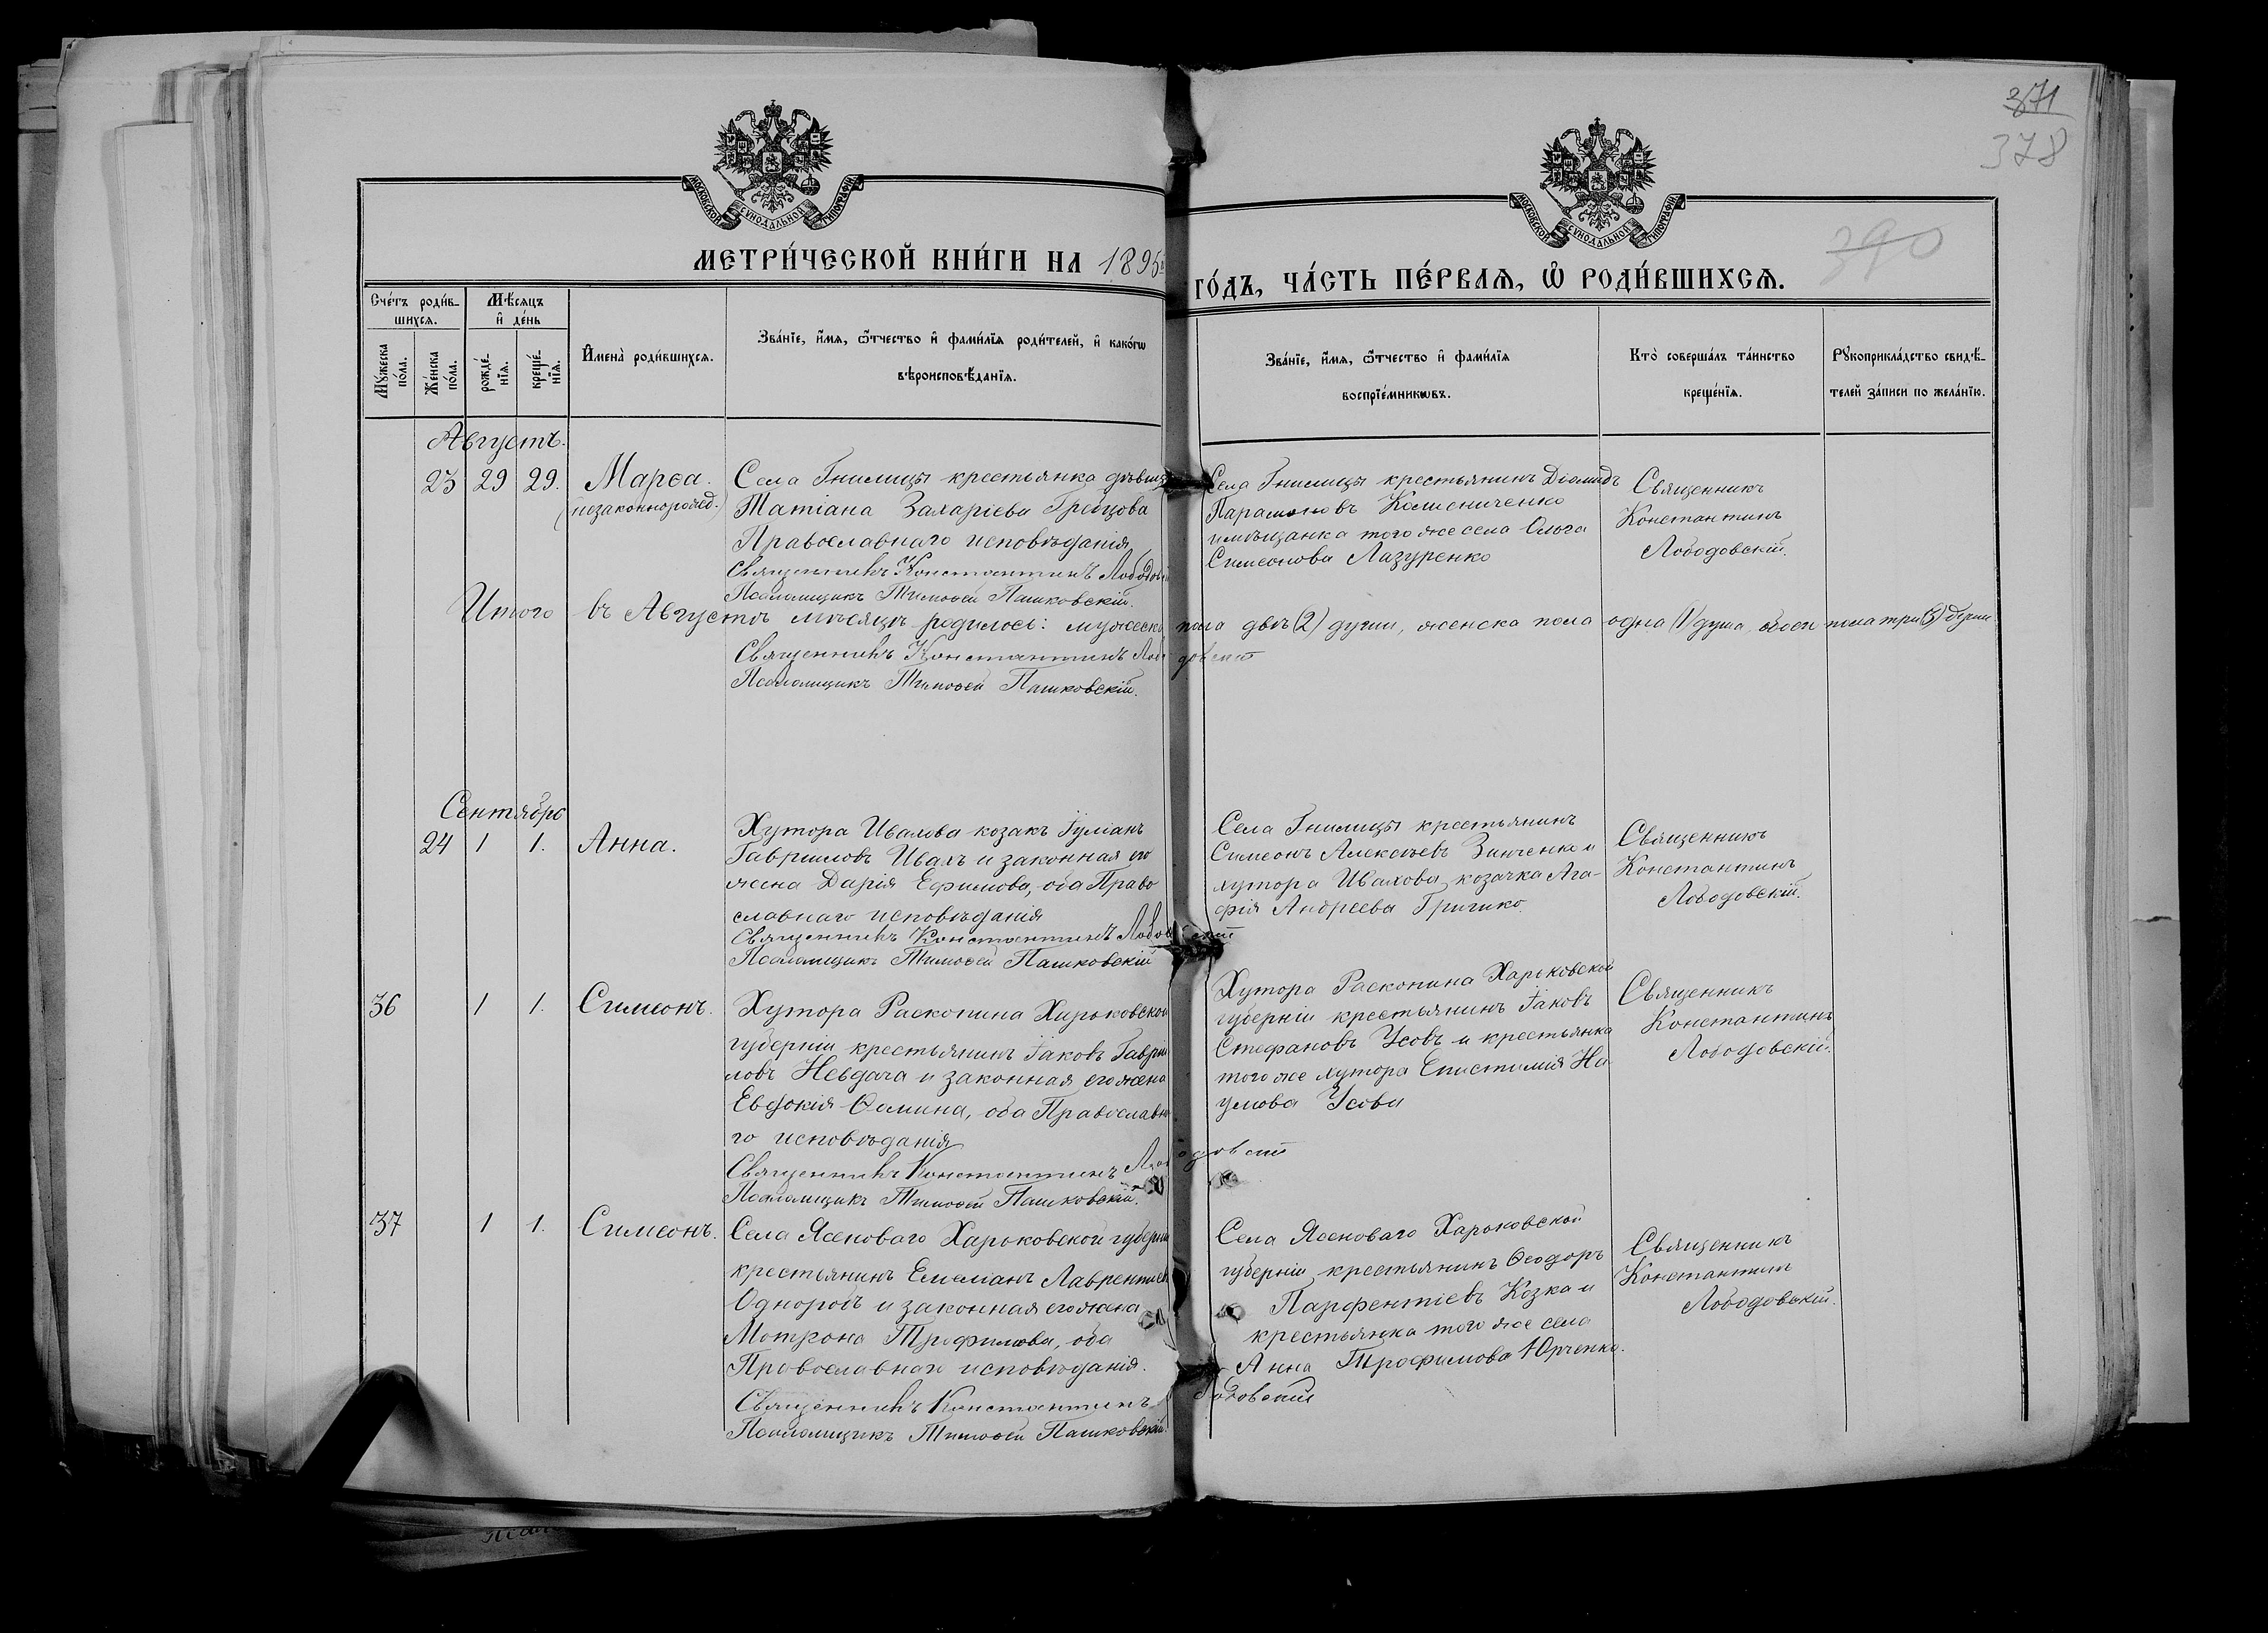 371
378
390
МОСКОВСКОЙ СѴНОДАЛЬНОЙ ТИПОГРАФІИ
МОСКОВСКОЙ СѴНОДАЛЬНОЙ ТИПОГРАФІИ
МЕТРИ́ЧЕСКОЙ КНИ́ГИ НА 1895
ГО́ДЪ, ЧА́СТЬ ПЕ́РВАѦ, Ѿ РОДИ́ВШИХСѦ.
Сче́тъ роди́в-
шихсѧ.
Мѣ́сѧцъ
и҆ де́нь
Мꙋ́жеска
по́ла.
Же́нска
по́ла.
рожде́-
нїѧ.
креще́-
нїѧ.
И҆мена̀ роди́вшихсѧ.
Зва́нїе, и҆́мѧ, ѻ҆́тчество и҆ фами́лїѧ роди́телей, и҆ како́гѡ
вѣроисповѣ́данїѧ.
Зва́нїе, и҆́мѧ, ѻ҆́тчество и҆ фами́лїѧ
воспрїе́мникѡвъ.
Кто̀ соверша́лъ та́инство
креще́нїѧ.
Рꙋкоприкла́дство свидѣ́-
телей за́писи по жела́нїю.
Августъ.
23 29 29. Марѳа.
(незаконнорожд.)
Села Гнилицы крестьянка дѣвица
Татіана Захаріева Грецова
Православнаго исповѣданія
Священникъ Константинъ Лободовскій
Псаломщикъ Тимоѳей Пашковскій.
Села Гнилицы крестьянинъ Діомидъ
Парамоновъ Колиениченко
и мѣщанка того же села Ольга
Симеонова Лазуренко
Священникъ
Константинъ
Лободовскій.
Итого въ Августѣ мѣсяцѣ родилось: мужеска пола двѣ (2) души, женска пола одна (1) душа, обоего пола три (3) души
Священникъ Константинъ Лободовскій
Псаломщикъ Тимоѳей Пашковскій.
Сентябрь
24 1 1. Анна.
Хутора Ивахова козакъ Іуліанъ
Гавриловъ Ивахъ и законная его
жена Дарія Ефимова, оба Право
славнаго исповѣданія
Священникъ Константинъ Лободовскій
Псаломщикъ Тимоѳей Пашковскій
Села Гнилицы крестьянинъ
Симеонъ Алексѣевъ Зинченко и
хутора Ивахова козачка Ага-
фія Андреева Гришко.
Священникъ
Константинъ
Лободовскій.
36 1 1. Симеонъ.
Хутора Расконина Харьковской
губерніи крестьянинъ Іаковъ Гаврі
ловъ Невдача и законная его жена
Евдокія Ѳомина, оба Православна
го исповѣданія
Священникъ Константинъ Лободовскій
Псаломщикъ Тимоѳей Пашковскій.
Хутора Расконина Харьковской
губерніи крестьянинъ Іаковъ
Стефановъ Усовъ и крестьянка
того же хутора Епистимія На
умова Усова
Священникъ
Константинъ
Лободовскій.
37 1 1. Симеонъ.
Села Ясеноваго Харьковской губерніи
крестьянинъ Емеліанъ Лаврентіев
Одноробъ и законная его жена
Мотрона Трофимова, оба
Православнаго исповѣданія.
Священникъ Константинъ Лободовскій
Псаломщикъ Тимоѳей Пашковскій.
Села Ясеноваго Харьковской
губерніи крестьянинъ Ѳеодоръ
Парфентіевъ Козка и
крестьянка того же села
Анна Трофимова Юрченко.
Священникъ
Константинъ
Лободовскій.